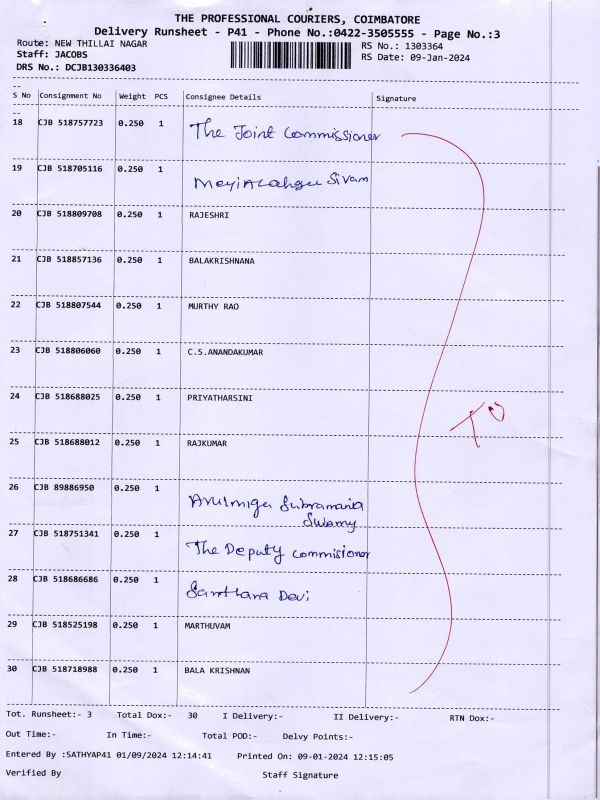 THE PROFESSIONAL COURIERS, COIMBATORE
Delivery Runsheet - P41 - Phone No.:0422-3505555 - Page No.:3
Route: NEW THILLAI NAGAR RS No.: 1303364
Staff: JACOBS RS Date: 09-Jan-2024
DRS No.: DCJB130336403
S No Consignment No Weight PCS Consignee Details Signature
18 CJB 518757723 0.250 1 The Joint Commissioner
19 CJB 518705116 0.250 1 Meyiazahgu Sivam
20 CJB 518809708 0.250 1 RAJESHRI
21 CJB 518857136 0.250 1 BALAKRISHNANA
22 CJB 518807544 0.250 1 MURTHY RAO
23 CJB 518806060 0.250 1 C.S.ANANDAKUMAR
24 CJB 518688025 0.250 1 PRIYATHARSINI
TO
25 CJB 518688012 0.250 1 RAJKUMAR
26 CJB 89886950 0.250 1 Arulmigu Subramania
Swamy
27 CJB 518751341 0.250 1 The Deputy Commisioner
28 CJB 518686686 0.250 1 Santhana Devi
29 CJB 518525198 0.250 1 MARTHUVAM
30 CJB 518718988 0.250 1 BALA KRISHNAN
Tot. Runsheet:- 3 Total Dox:- 30 I Delivery:- II Delivery:- RTN Dox:-
Out Time:- In Time:- Total POD:- Delvy Points:-
Entered By :SATHYAP41 01/09/2024 12:14:41 Printed On: 09-01-2024 12:15:05
Verified By Staff Signature